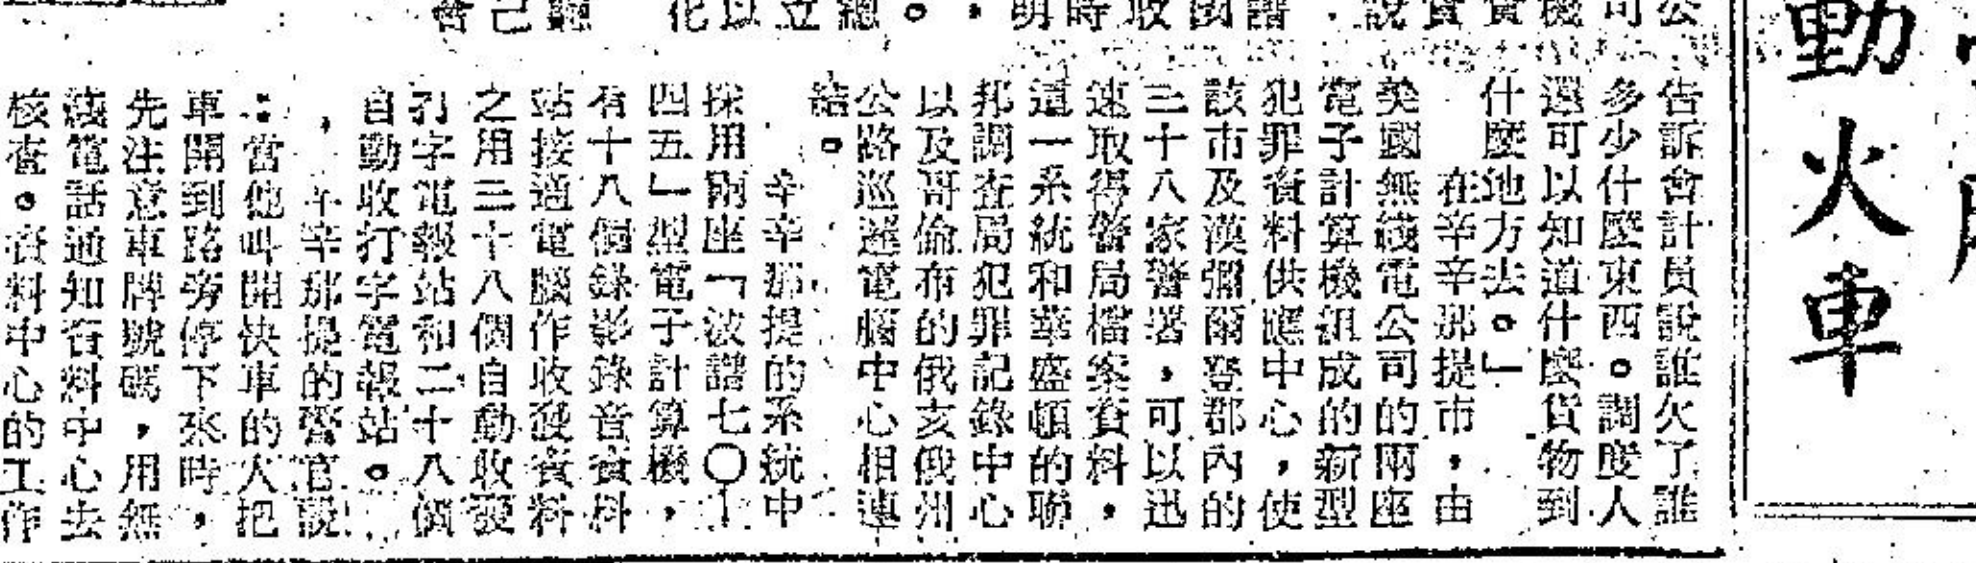 動火車
告訴會計員說誰欠了誰
多少什麼東西。調度人
還可以知道什麼貨物到
什麼地方去。」
在辛辛那提市,由
美國無綫電公司的兩座
電子計算機組成的新型
犯罪資料供應中心,使
該市及漢彌爾登郡內的
三十八家警署,可以迅
速取得警局檔案資料,
這一系統和華盛頓的聯
邦調查局犯罪記錄中心
以及哥倫布的俄亥俄州
公路巡邏電腦中心相連
結。
辛辛那提的系統中
採用兩座「波譜七〇—
四五」型電子計算機,
有十八個錄影錄音資料
站接通電腦作收發資料
之用三十八個自動收發
打字電報站和二十八個
自動收打字電報站。
辛辛那提的警官說
:當他叫開快車的人把
車開到路旁停下來時,
先注意車牌號碼,用無
綫電話通知資料中心去
核查。資料中心的工作